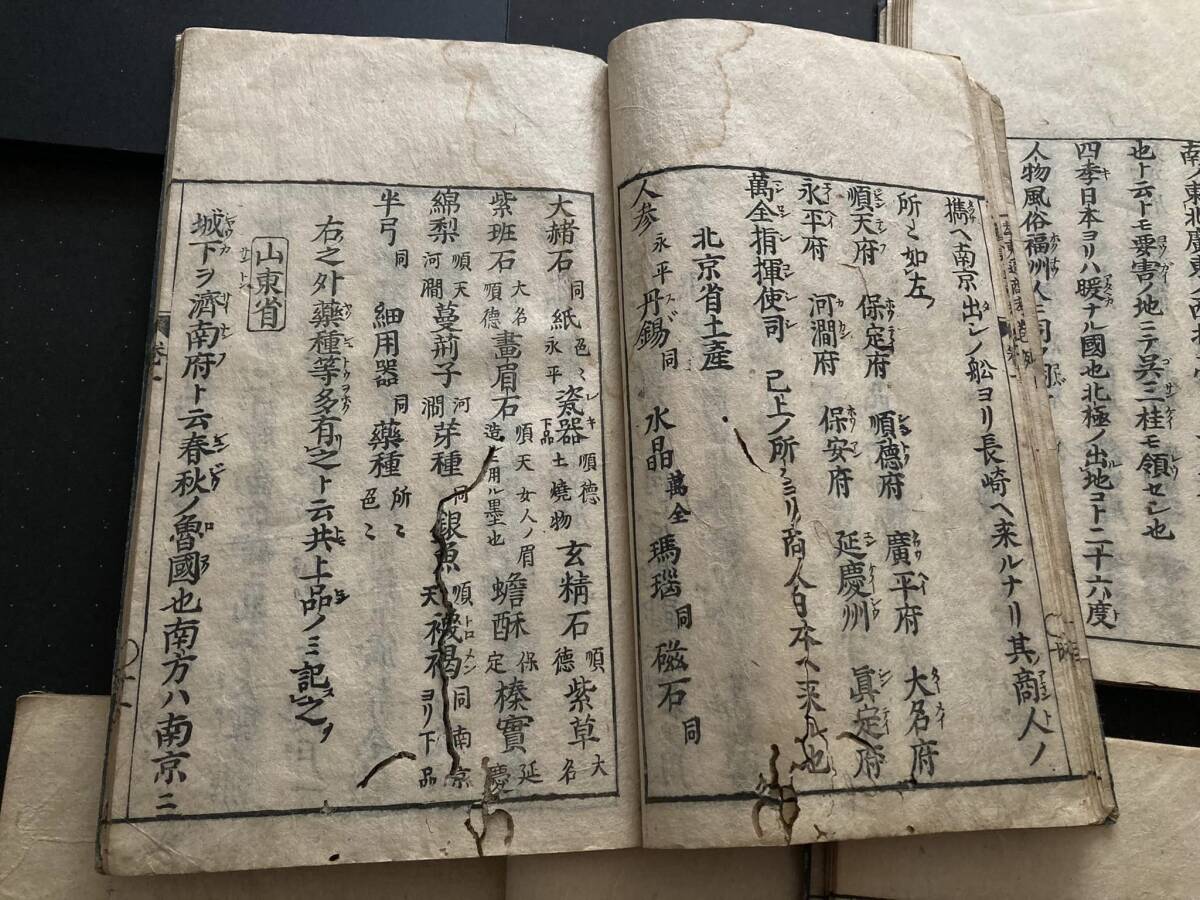 南
也ト云トモ要害ノ地ニテ呉三桂モ領セシ也
四季日本ヨリハ暖ナル國也北極ノ出地コト二十六度
人物風俗福州人ニ同シ
攜ヘ南京出シノ舩ヨリ長崎ヘ来ルナリ其商人ノ
所〻如左
順天府 保定府 順德府 廣平府 大名府
永平府 河澗府 保安府 延慶州 眞定府
萬全指揮使司 已上ノ所〻ヨリ商人日本ヘ来ル也
北京省土産
人参永平 丹錫同 水晶萬全 瑪瑙同 磁石同
大赭石同 紙色〻永平 瓷器順德下品土燒物 玄精石順德 紫草大名
紫班石大名順德 畫眉石順天女人ノ眉造ニ用ル墨也 蟾酥保定 榛實延慶
綿梨順天河澗 蔓荊子河澗 芽種同 銀魚順天 襪褐同南京ヨリ下品
半弓同 細用器同 藥種所〻色〻
右之外藥種等多有之ト云共上品ノミ記之
山東省
城下ヲ濟南府ト云春秋ノ魯國也南方ハ南京ニ